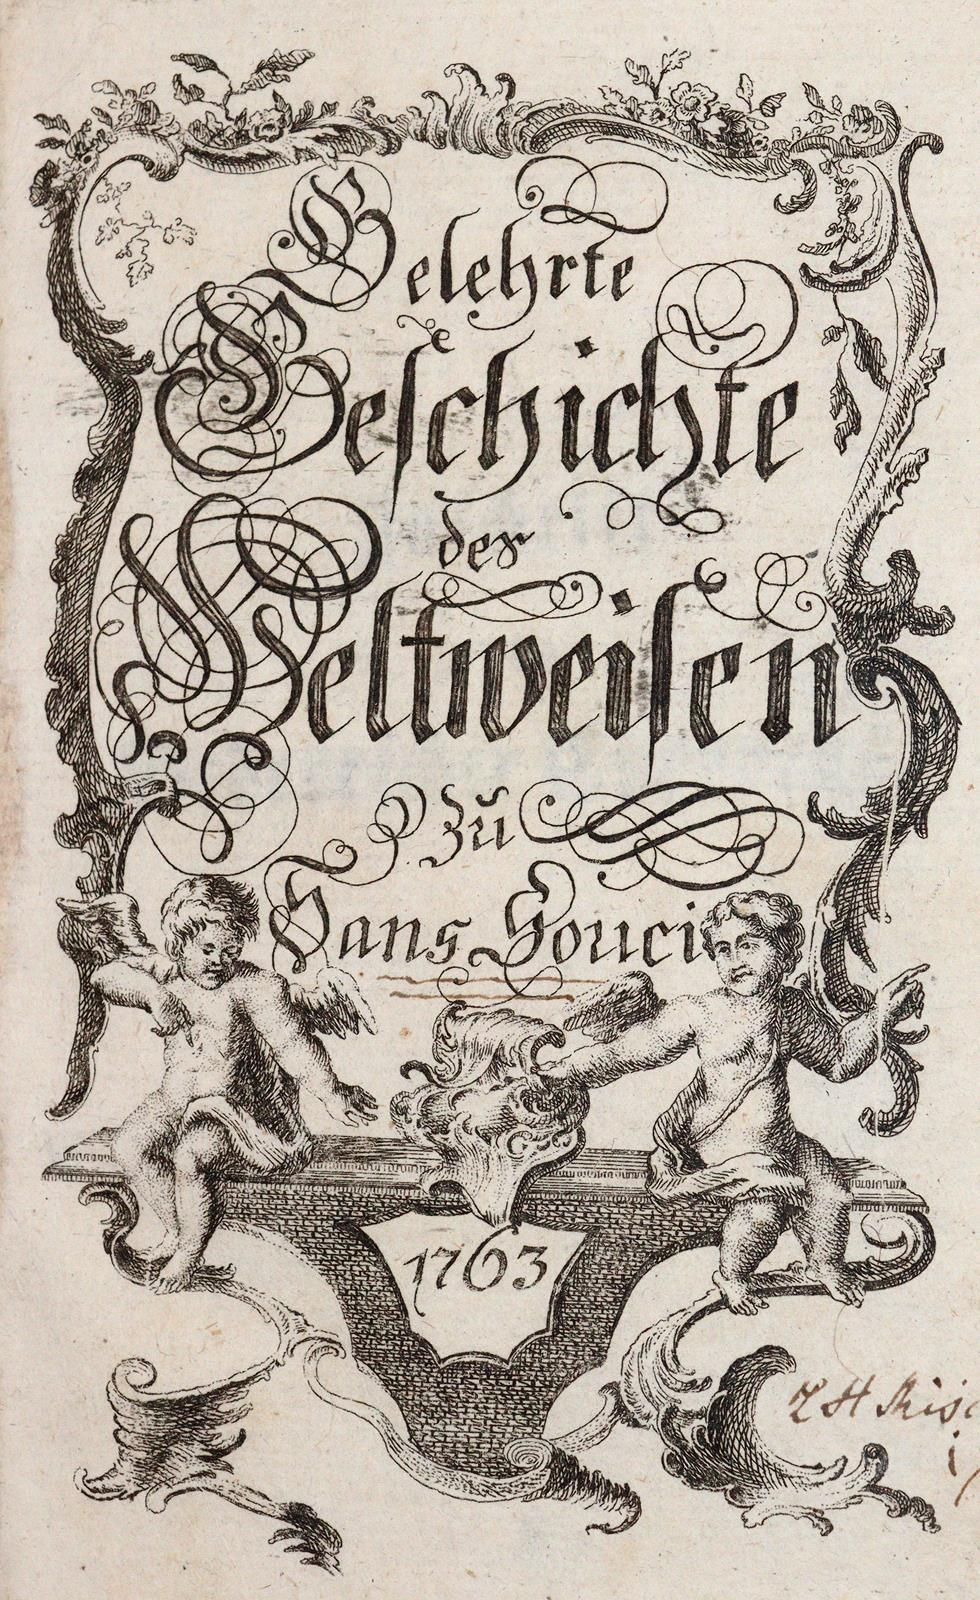 Gelehrte
Geſchichte
der
Weltweiſen
zu
Sans Souci
1763